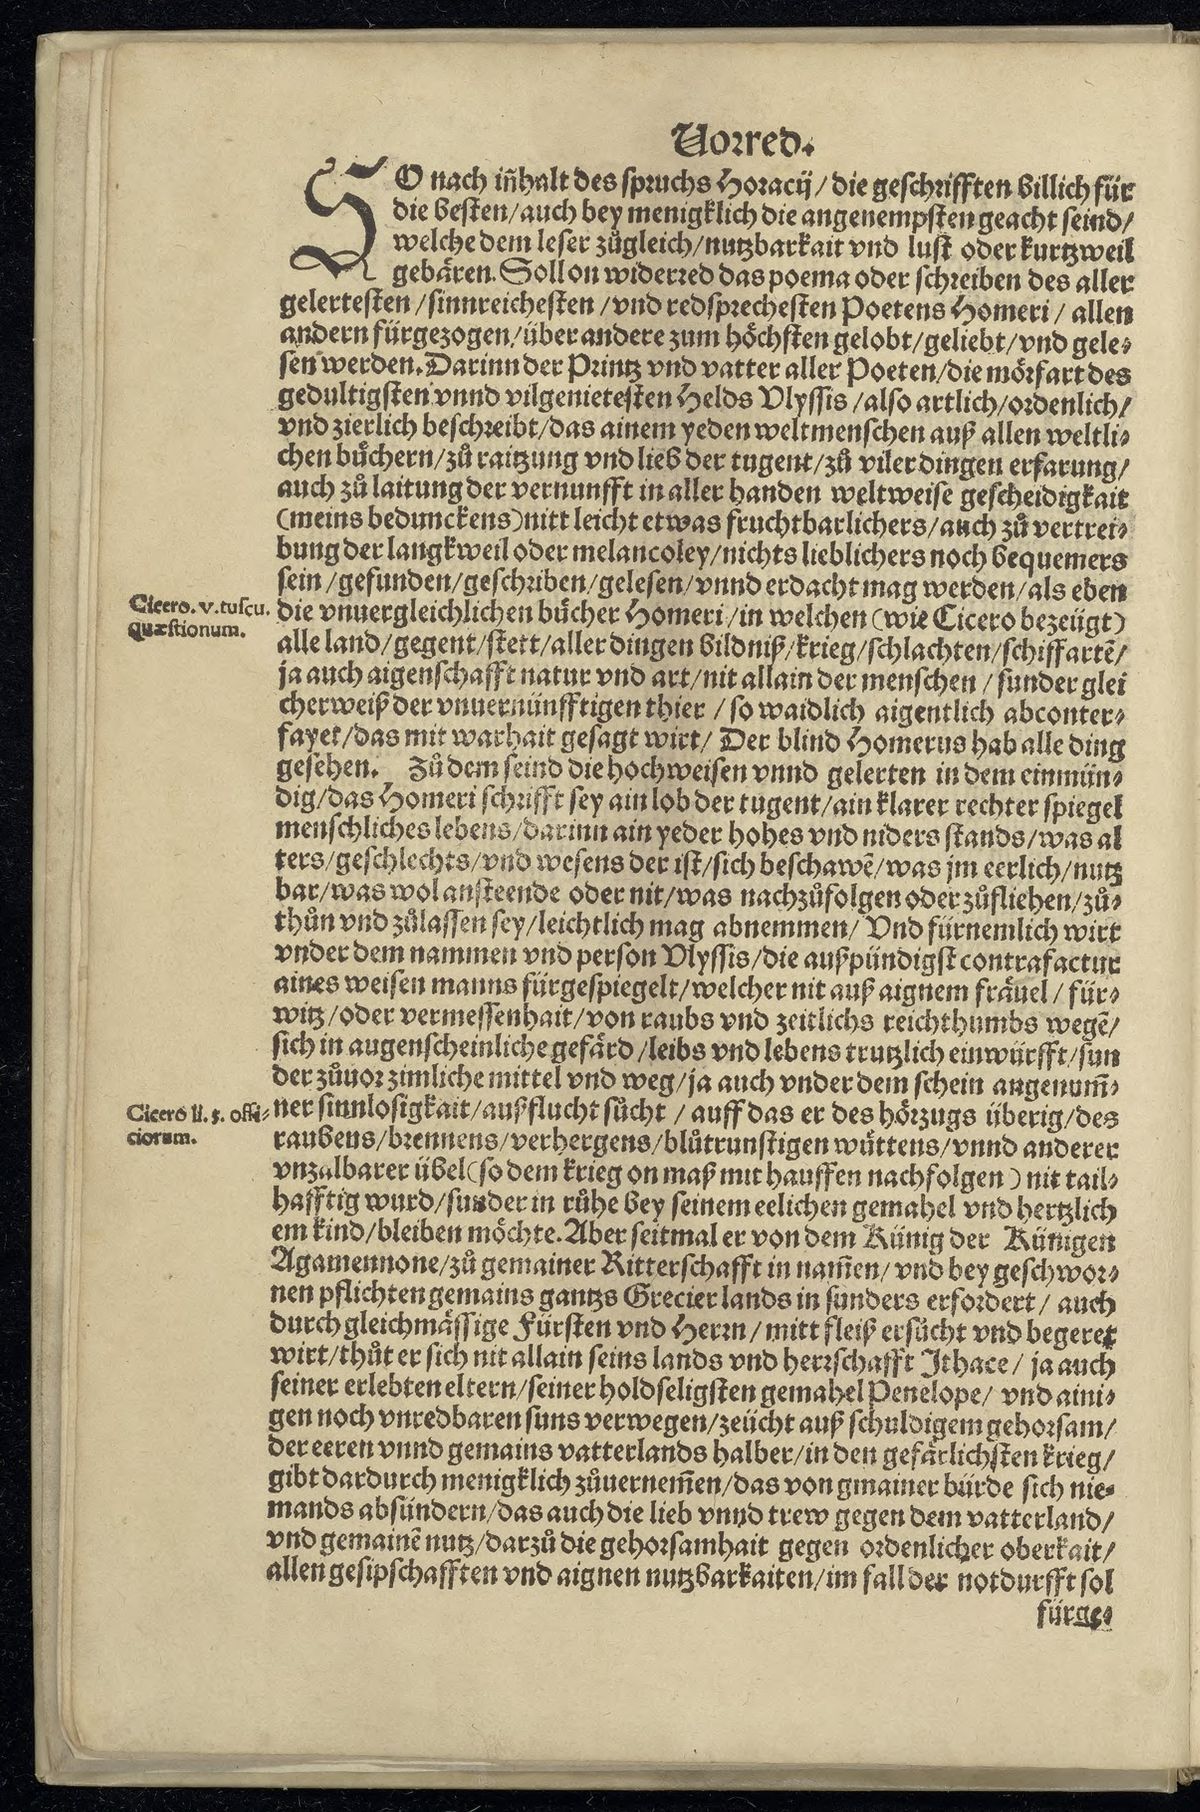 Vorred.
SO nach iñhalt des spruchs Horacij/ die geschrifften billich für
die besten/ auch bey menigklich die angenempsten geacht seind/
welche dem leser zůgleich/ nutzbarkait vnd lust oder kurtzweil
gebären. Soll on widerred das poema oder schreiben des aller
gelertesten/ sinnreichesten/ vnd redsprechesten Poetens Homeri/ allen
andern fürgezogen/ über andere zum höchsten gelobt/ geliebt/ vnd gele⸗
sen werden. Darinn der Printz vnd vatter aller Poeten/ die mörfart des
gedultigsten vnnd vilgenietesten Helds Vlyssis/ also artlich/ ordenlich/
vnd zierlich beschreibt/ das ainem yeden weltmenschen auß allen weltli⸗
chen bůchern/ zů raitzung vnd lieb der tugent/ zů viler dingen erfarung/
auch zů laitung der vernunfft in aller handen weltweise gescheidigkait
(meins bedunckens) nitt leicht etwas fruchtbarlichers/ auch zů vertrei⸗
bung der langkweil oder melancoley/ nichts lieblichers noch bequemers
sein/ gefunden/ geschriben/ gelesen/ vnnd erdacht mag werden/ als eben
Cicero. v. tuscu.
quæstionum.
die vnuergleichlichen bücher Homeri/ in welchen (wie Cicero bezeügt)
alle land/ gegent/ stett/ aller dingen bildniß/ krieg/ schlachten/ schiffartē/
ja auch aigenschafft natur vnd art/ nit allain der menschen/ sunder glei
cherweiß der vnuernünfftigen thier/ so waidlich aigentlich abconter⸗
fayet/ das mit warhait gesagt wirt/ Der blind Homerus hab alle ding
gesehen. Zů dem seind die hochweisen vnnd gelerten in dem einmün⸗
dig/ das Homeri schrifft sey ain lob der tugent/ ain klarer rechter spiegel
menschliches lebens/ darinn ain yeder hohes vnd niders stands/ was al
ters/ geschlechts/ vnd wesens der ist/ sich beschawē/ was jm eerlich/ nutz
bar/ was wol ansteende oder nit/ was nachzůfolgen oder zůfliehen/ zů⸗
thůn vnd zůlassen sey/ leichtlich mag abnemmen/ Vnd fürnemlich wirt
vnder dem nammen vnd person Vlyssis/ die außpündigst contrafactur
aines weisen manns fürgespiegelt/ welcher nit auß aignem fräuel/ für⸗
witz/ oder vermessenhait/ von raubs vnd zeitlichs reichthumbs wegē/
sich in augenscheinliche gefärd/ leibs vnd lebens trutzlich einwürfft/ sun
der zůuor zimliche mittel vnd weg/ ja auch vnder dem schein angenum̄⸗
Cicero li. 3. offi⸗
ciorum.
ner sinnlosigkait/ außflucht sůcht/ auff das er des hörzugs überig/ des
raubens/ brennens/ verhergens/ blůtrunstigen wüttens/ vnnd anderer
vnzalbarer übel (so dem krieg on maß mit hauffen nachfolgen) nit tail⸗
hafftig wurd/ sunder in růhe bey seinem eelichen gemahel vnd hertzlich
em kind/ bleiben möchte. Aber seitmal er von dem Künig der Künigen
Agamennone/ zů gemainer Ritterschafft in nam̄en/ vnd bey geschwor⸗
nen pflichten gemains gantzs Grecier lands in sunders erfordert/ auch
durch gleichmässige Fürsten vnd Herrn/ mitt fleiß ersůcht vnd begeret
wirt/ thůt er sich nit allain seins lands vnd herrschafft Ithace/ ja auch
seiner erlebten eltern/ seiner holdseligsten gemahel Penelope/ vnd aini⸗
gen noch vnredbaren suns verwegen/ zeücht auß schuldigem gehorsam/
der eeren vnnd gemains vatterlands halber/ in den gefärlichsten krieg/
gibt dardurch menigklich zůuernem̄en/ das von gmainer bürde sich nie⸗
mands absündern/ das auch die lieb vnnd trew gegen dem vatterland/
vnd gemainē nutz/ darzů die gehorsamhait gegen ordenlicher oberkait/
allen gesipschafften vnd aignen nutzbarkaiten/ im fall der notdurfft sol
fürge⸗